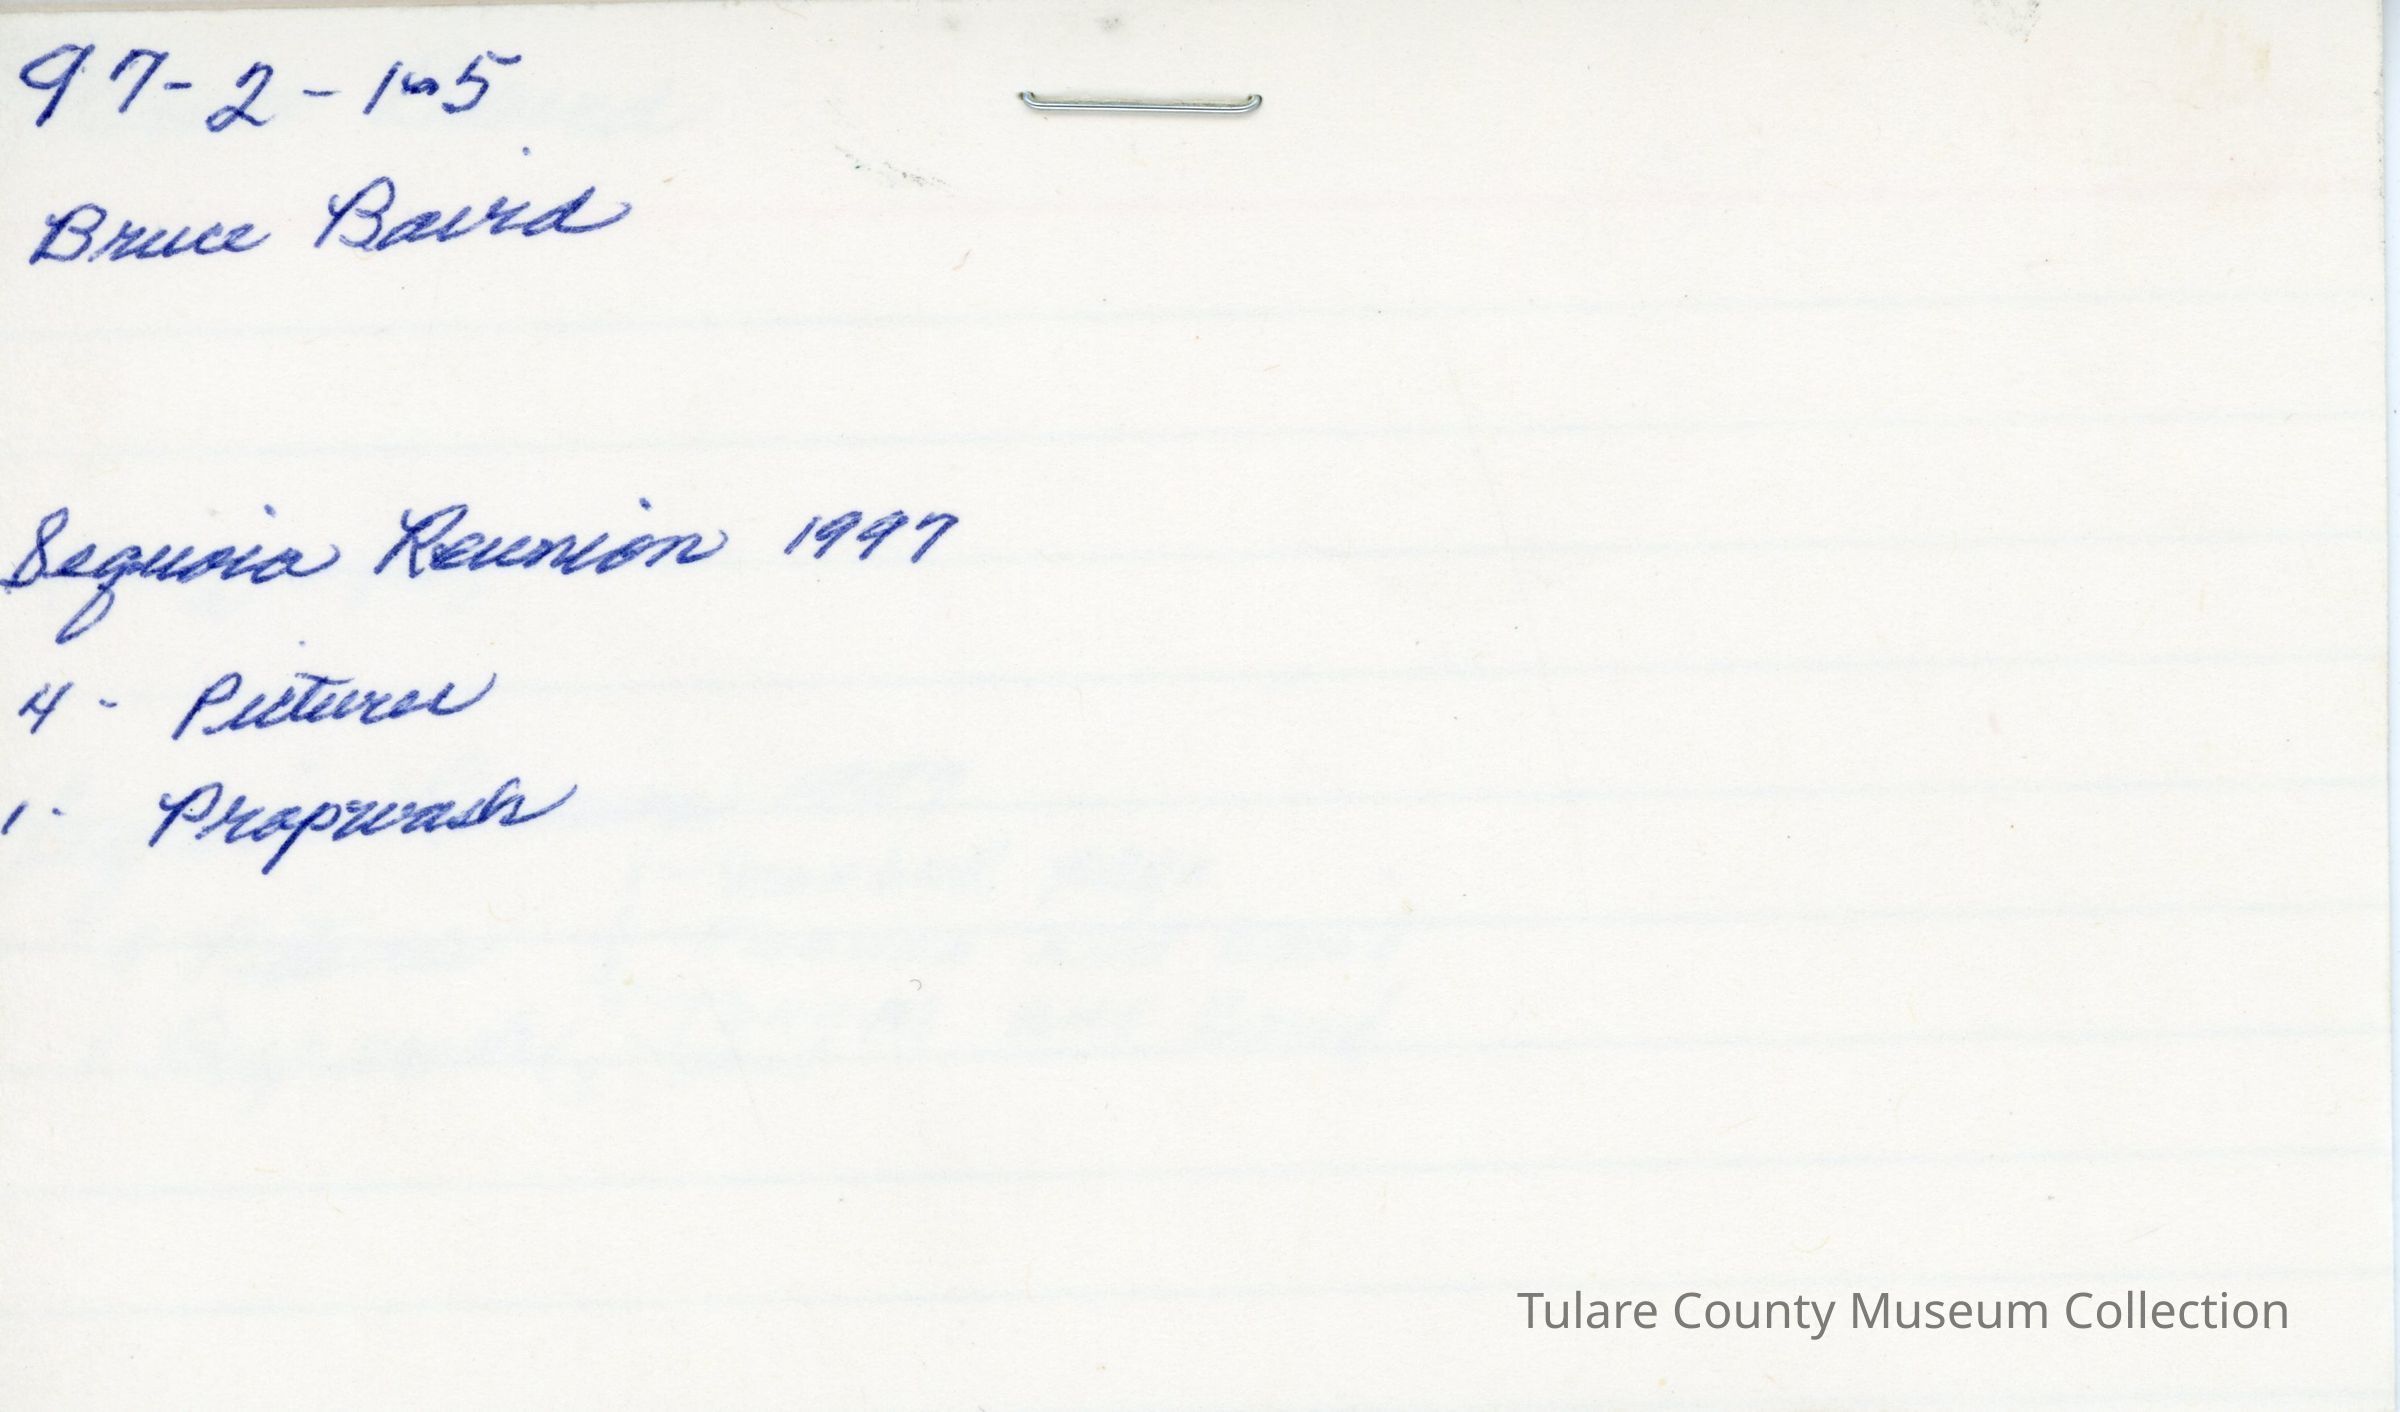 97-2-1to5
Bruce Baird
Sequoia Reunion 1997
4- Pictures
1- Propwash
Tulare County Museum Collection